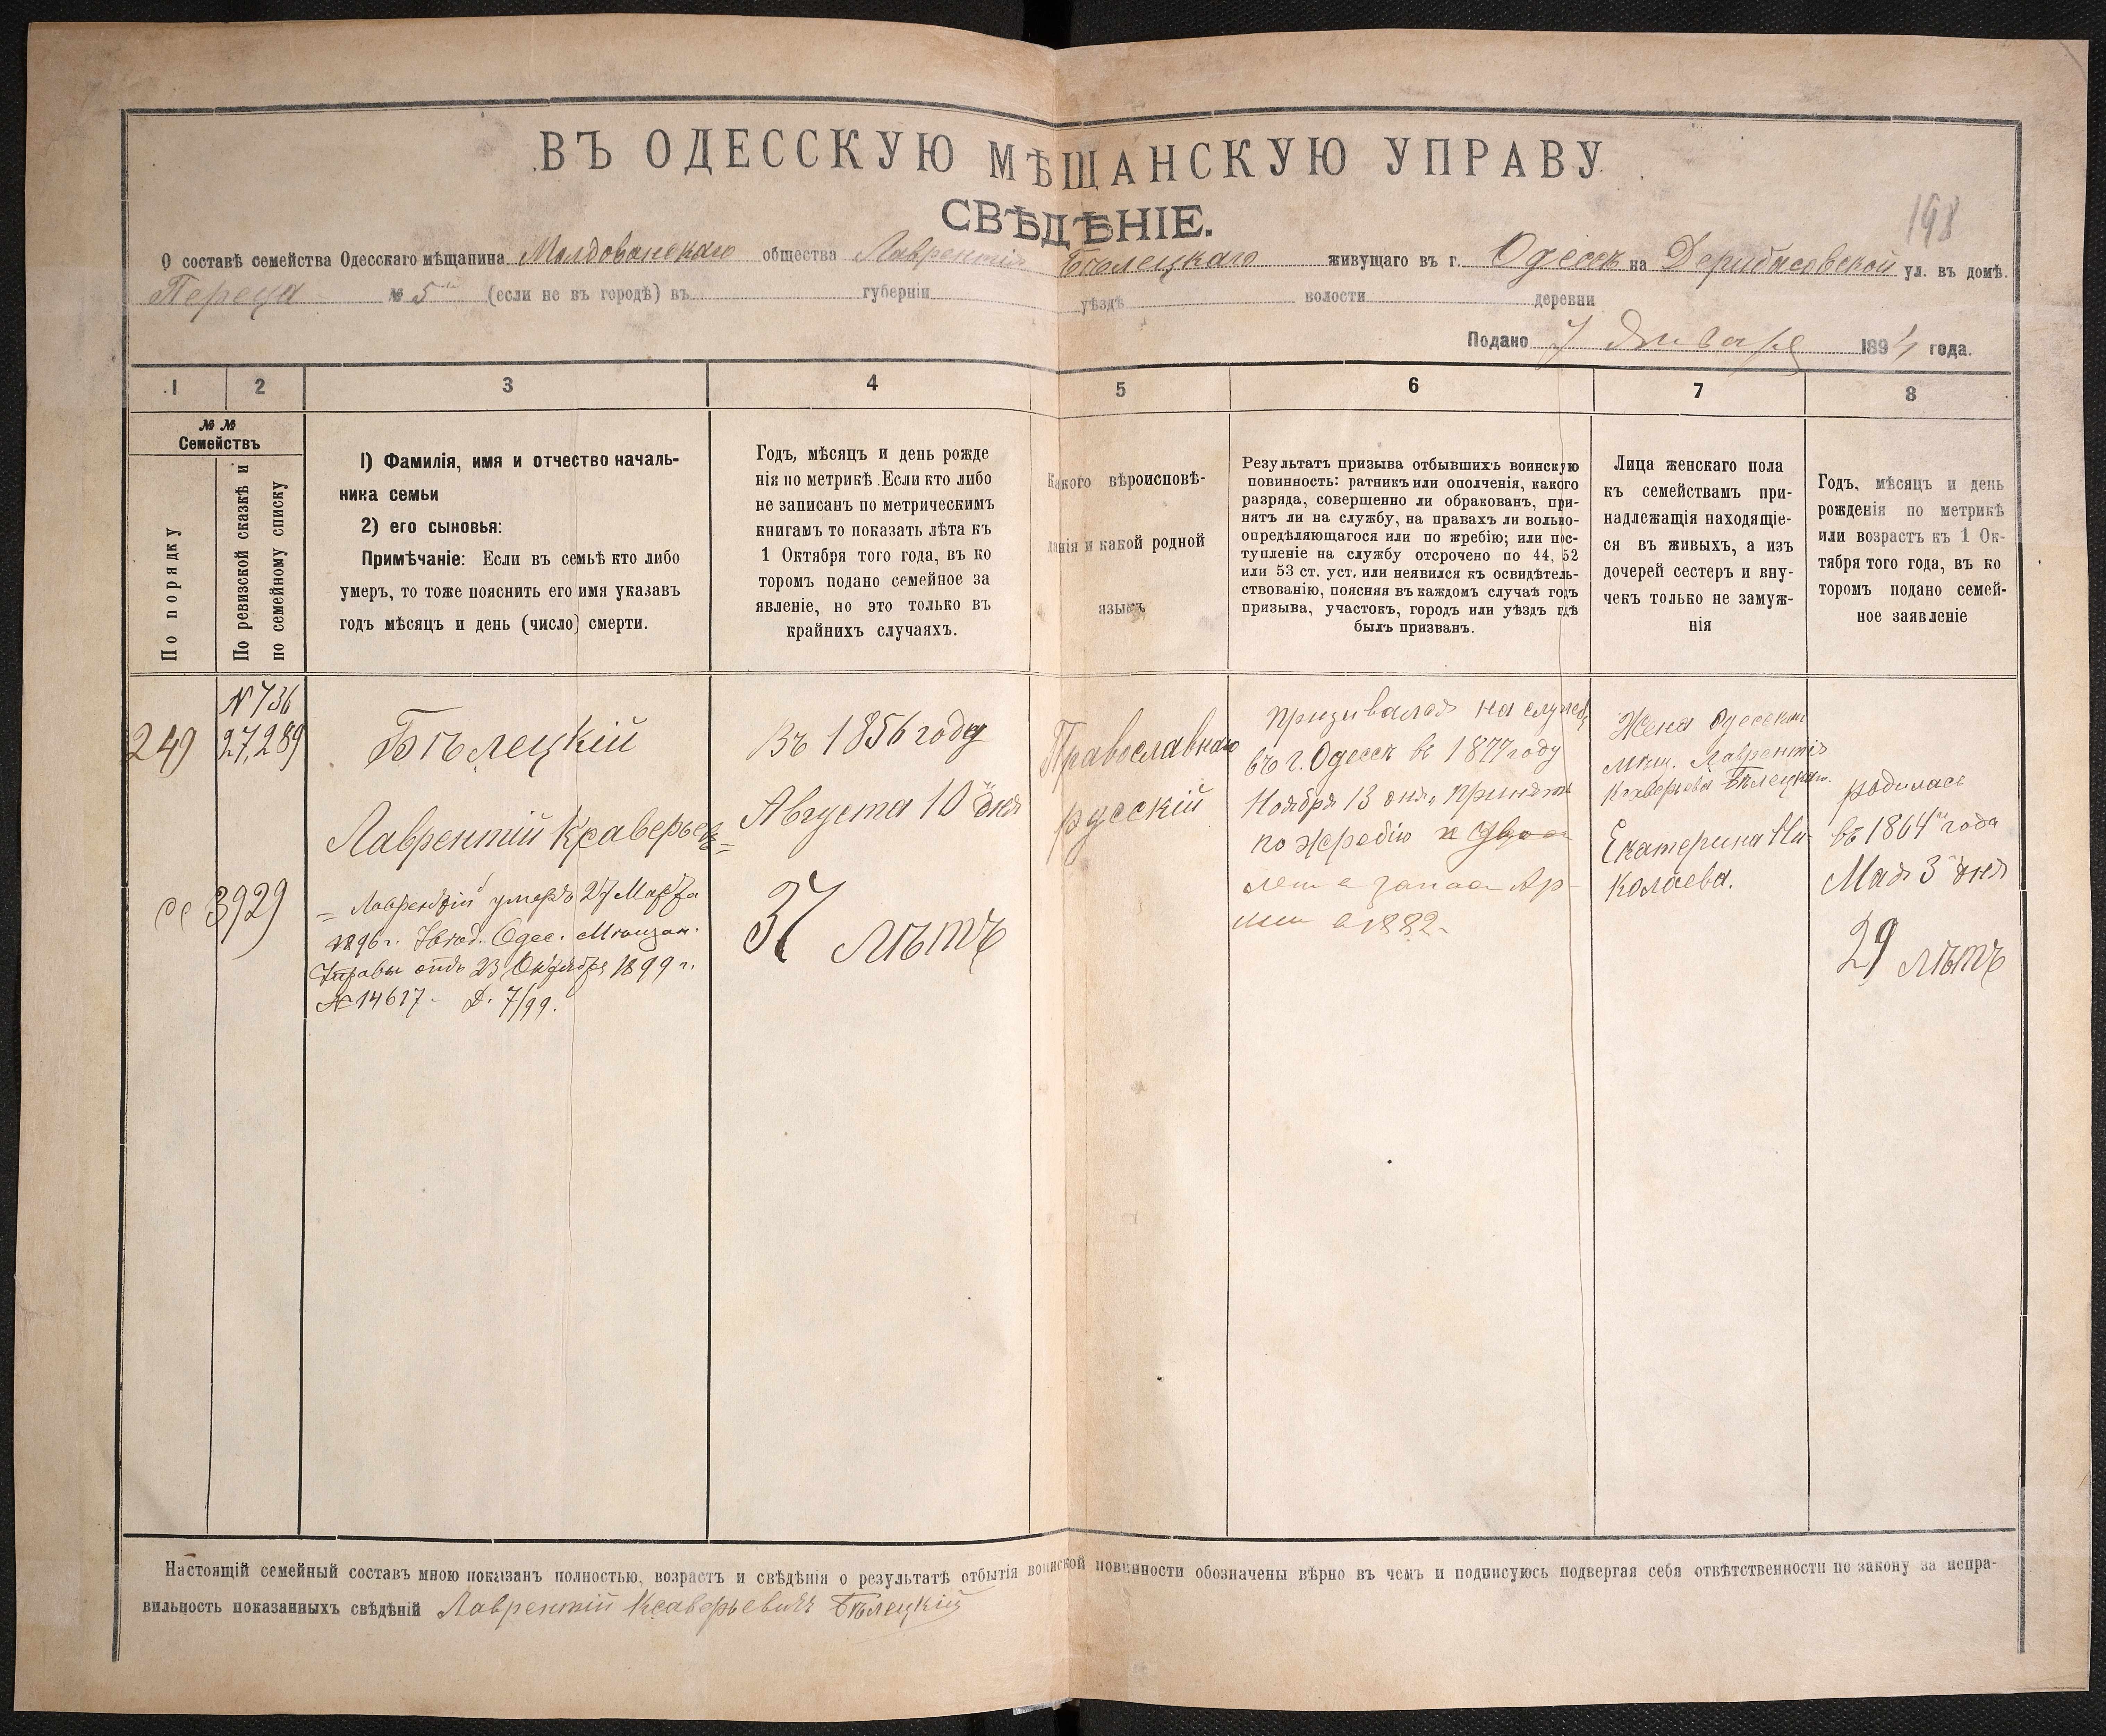 198
ВЪ ОДЕССКУЮ МѢЩАНСКУЮ УПРАВУ
СВѢДѢНІЕ.
О составѣ семейства Одесскаго мѣщанина Молдованскаго общества Лаврентія Бѣлецкаго живущаго въ г. Одессѣ на Дерибасовской ул. въ домѣ.
Переца № 5 (если не въ городѣ) въ губерніи уѣздѣ волости деревни
Подано 7 Января 1894 года.
1 2 3 4 5 6 7 8
№ №
Семействъ
По порядку
По ревизской сказкѣ и
по семейному списку
1) Фамилія, имя и отчество началь-
ника семьи
2) его сыновья:
Примѣчаніе: Если въ семьѣ кто либо
умеръ, то тоже пояснить его имя указавъ
годъ мѣсяцъ и день (число) смерти.
Годъ, мѣсяцъ и день рожде
нія по метрикѣ. Если кто либо
не записанъ по метрическимъ
книгамъ то показать лѣта къ
1 Октября того года, въ ко
торомъ подано семейное за
явленіе, но это только въ
крайнихъ случаяхъ.
Какого вѣроисповѣ-
данія и какой родной
языкъ
Результатъ призыва отбывшихъ воинскую
повинность: ратникъ или ополченія, какого
разряда, совершенно ли обракованъ, при-
нятъ ли на службу, на правахъ ли вольно-
опредѣляющагося или по жребію; или пос-
тупленіе на службу отсрочено по 44, 52
или 53 ст. уст. или неявился къ освидѣтель-
ствованію, поясняя въ каждомъ случаѣ годъ
призыва, участокъ, городъ или уѣздъ гдѣ
былъ призванъ.
Лица женскаго пола
къ семействамъ при-
надлежащія находящіе-
ся въ живыхъ, а изъ
дочерей сестеръ и вну-
чекъ только не замуж-
нія
Годъ, мѣсяцъ и день
рожденія по метрикѣ
или возрастъ къ 1 Ок-
тября того года, въ ко
торомъ подано семей-
ное заявленіе
249
N 736
27,289
3929
Бѣлецкій
Лаврентій Ксаверьевъ
= Лаврентій умеръ 27 Марта
1896 г. Одес. Мѣщан.
Управы отъ 23 Октября 1899 г.
№ 14617. Д. 7/99.
Въ 1856 году
Августа 10 дня
37 лѣтъ
Православнаго
русскій
призывался на службу
въ г. Одессѣ въ 1877 году
Ноября 13 дня, принятъ
по жребію
запас Ар-
мии в 1882.
Жена Одесскаго
мѣщ. Лаврентія
Ксаверьева Бѣлецкаго.
Екатерина Ни-
колаева.
родилась
въ 1864 года
Мая 3 дня
29 лѣтъ
Настоящій семейный составъ мною показанъ полностью, возрастъ и свѣдѣнія о результатѣ отбытія воинской повинности обозначены вѣрно въ чемъ и подписуюсь подвергая себя отвѣтственности по закону за непра-
вильность показанныхъ свѣдѣній Лаврентій Ксаверьевичъ Бѣлецкій